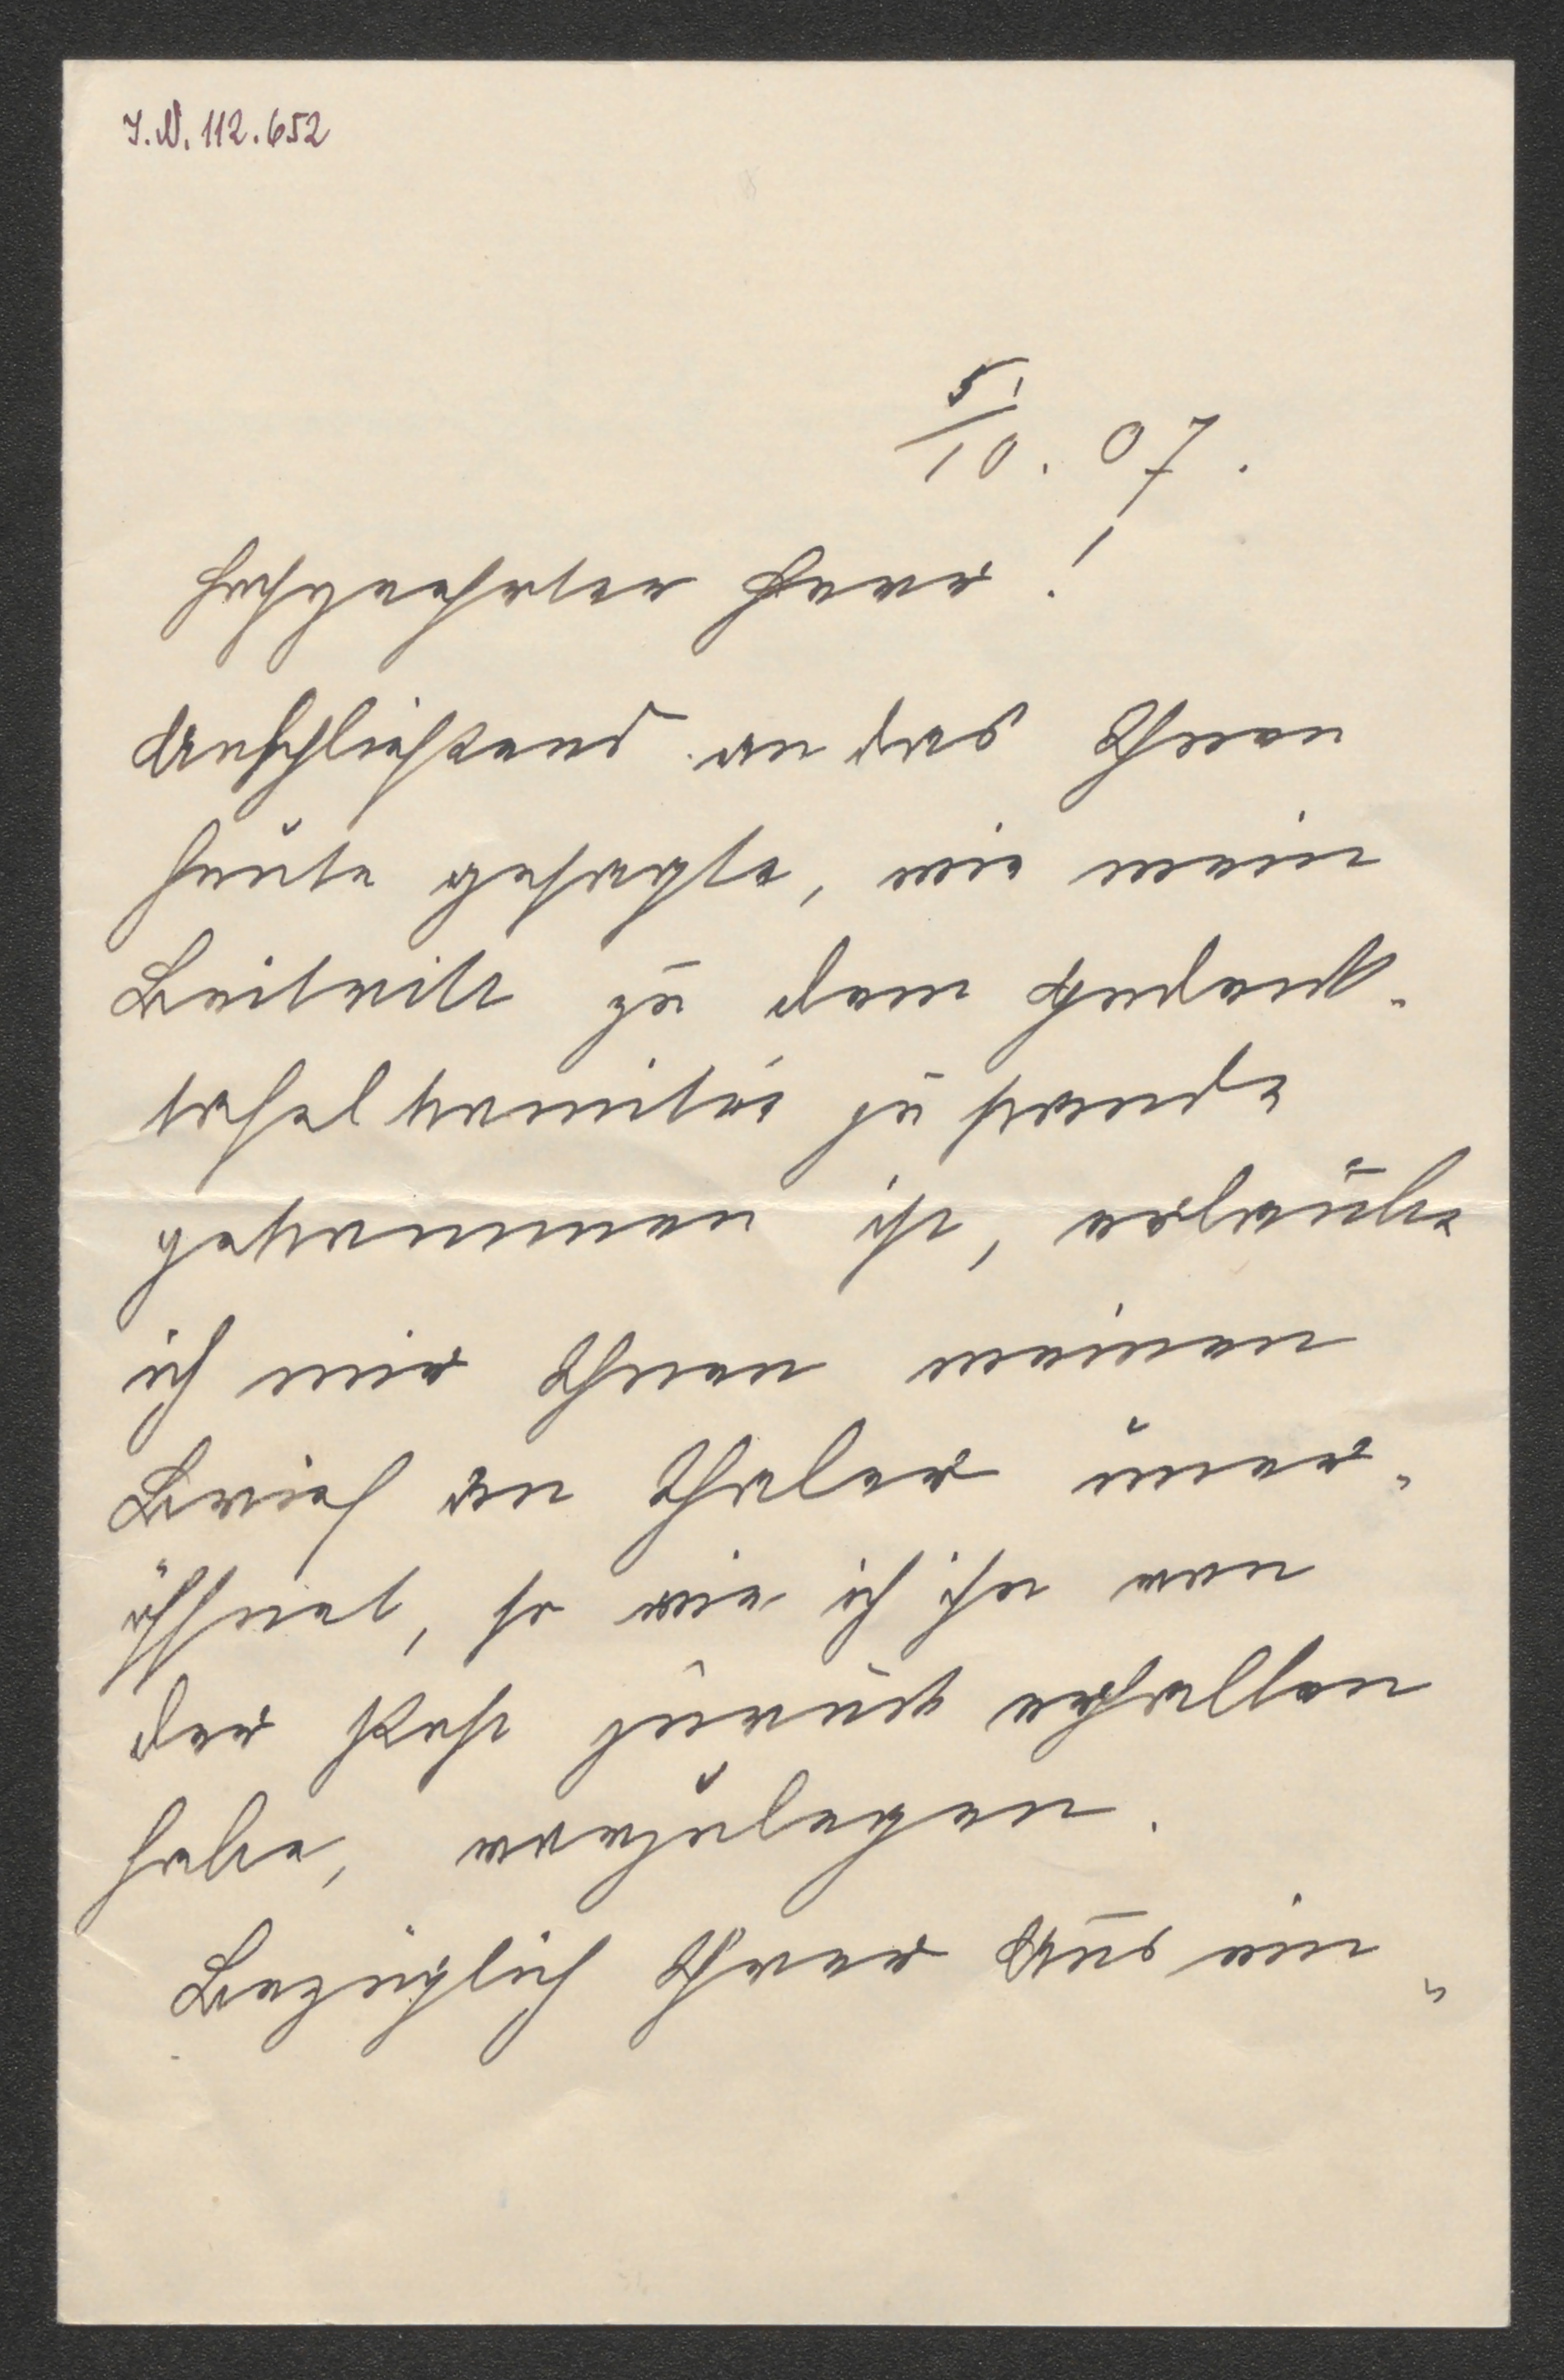 I.N. 112.652
5./10. 07.
Hochgeehrter Herr!
Anschließend an das Ihnen
heute gesagte, wie mein
Beitritt zu dem Gedenk-
tafelkomitée zustande
gekommen ist, erlaube
ich mir Ihnen meinen
Brief an Thaler uner-
öffnet, so wie ich ihn von
der Post zurück erhalten
habe, vorzulegen.
Bezüglich Ihrer Aus ein-